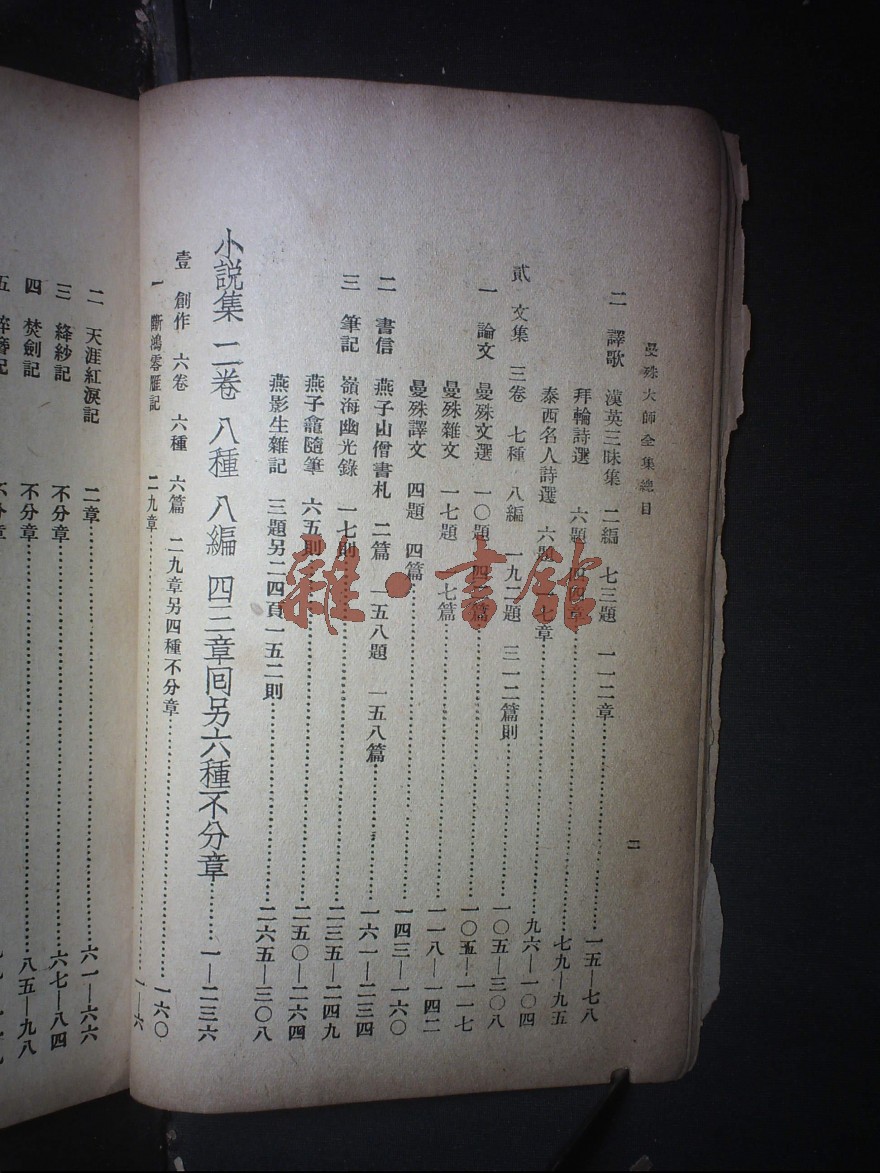 曼殊大師全集總目
二
二 譯歌 漢英三昧集 二編 七三題 一一二章……一五—七八
拜輪詩選 六題 四四章……七九—九五
泰西名人詩選 六題 一七章……九六—一〇四
貳 文集 三卷 七種 八編 一九二題 三一二篇則……一〇五—三〇八
一 論文 曼殊文選 一〇題 四二篇……一〇五—一一七
曼殊雜文 一七題 一七篇……一一八—一四二
曼殊譯文 四題 四篇……一四三—一六〇
二 書信 燕子山僧書札 二篇 一五八題 一五八篇……一六一—二三四
三 筆記 嶺海幽光錄 一七則……二三五—二四九
燕子龕隨筆 六五則……二五〇—二六四
燕影生雜記 三題另二四頁一五二則……二六五—三〇八
小說集 二卷 八種 八編 四三章回另六種不分章……一—二三六
壹 創作 六卷 六種 六篇 二九章另四種不分章……一六〇
一 斷鴻零雁記 二九章……一—六
二 天涯紅淚記 二章……六一—六六
三 絳紗記 不分章……六七—八四
四 焚劍記 不分章……八五—九八
五
雜·書館